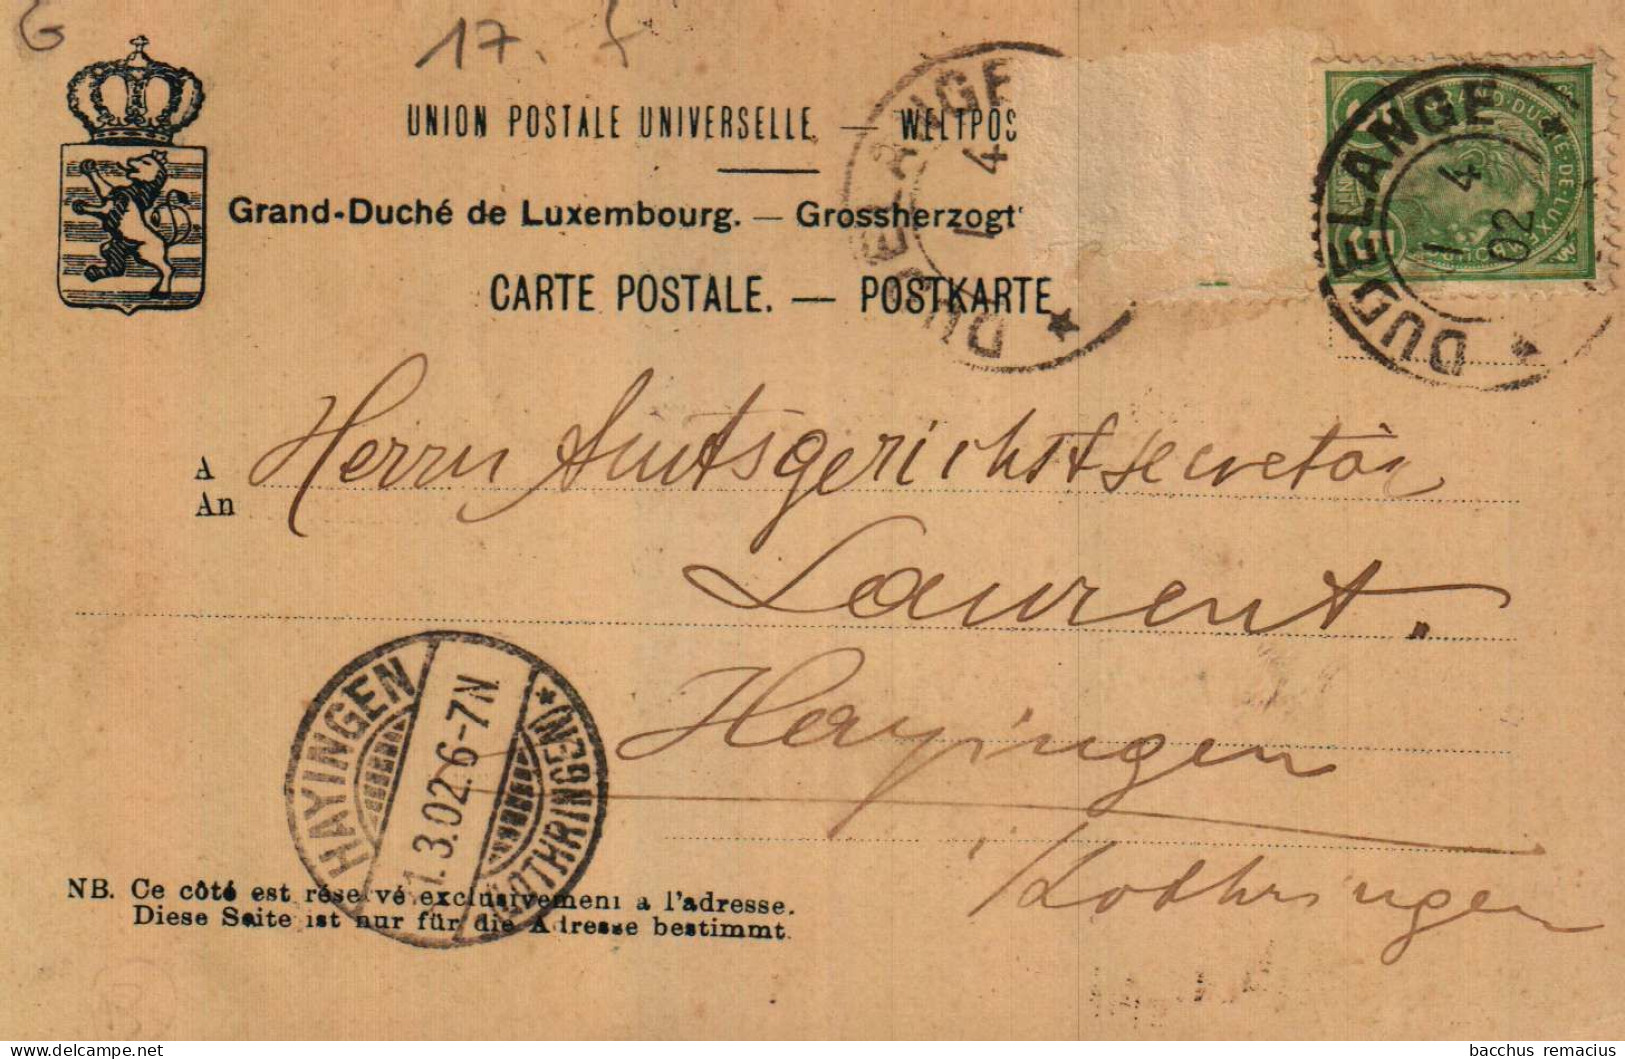 17.
UNION POSTALE UNIVERSELLE. — WELTPOS
Grand-Duché de Luxembourg. — Grossherzogt
CARTE POSTALE. — POSTKARTE
DUDELANGE
4
1
DUDELANGE
1 4
02
GRAND-DUCHÉ-DE-LUXEMBOURG
A
An
Herrn Amtsgerichtssecretär
Laurent.
Hayingen
Lothringen
HAYINGEN
1.3.02.6-7N.
* (LOTHRINGEN)
NB. Ce côté est réservé exclusivement a l'adresse.
Diese Seite ist nur für die Adresse bestimmt.
bacchus remacius